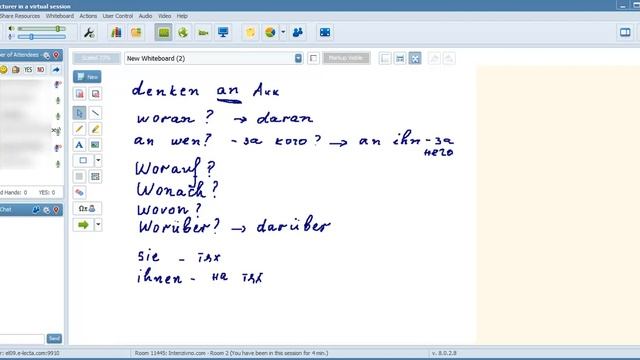 cturer in a virtual session
Share Resources Window Attachments User Control Audio Video Chat Help
ber of Attendees
YES NO
Scaled 77%
New Whiteboard (2)
Markup Visible
New
denken an Akk
woran? → daran
an wen? - за кого? → an ihn - за
него
Worauf?
Wonach?
wovon?
Worüber? → darüber
sie - їх
ihnen - на їх
Hands: 0 YES: 0
Chat
er: el09.e-lecta.com:9910
Room 11445: Intenzivno.com - Room 2 (You have been in this session for 4 min.)
v. 8.0.2.8